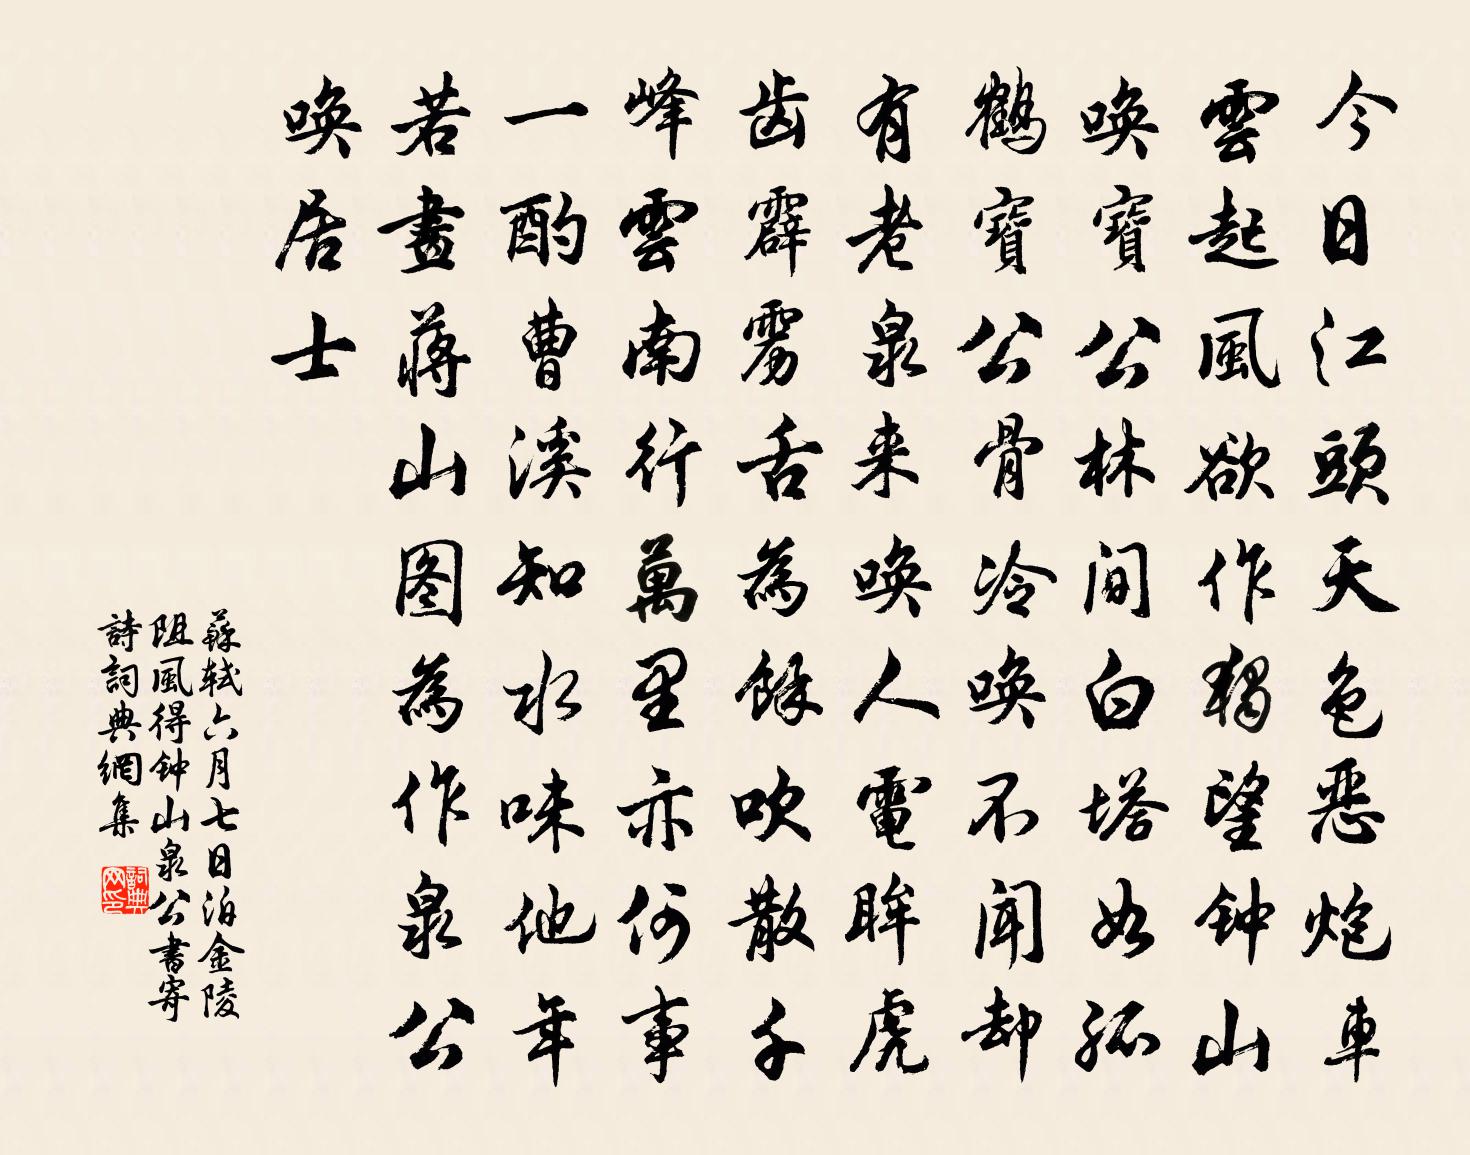 今日江頭天色惡炮車
雲起風欲作獨望钟山
喚寶公林間白塔如孤
鶴寶公骨冷喚不聞却
有老泉来喚人電眸虎
齿霹雳舌為餘吹散千
峰雲南行萬里亦何事
一酌曹溪知水味他年
若畫蔣山图為作泉公
喚居士
蘇軾六月七日泊金陵
阻風得钟山泉公書寄
詩詞典網集
詞典
网印